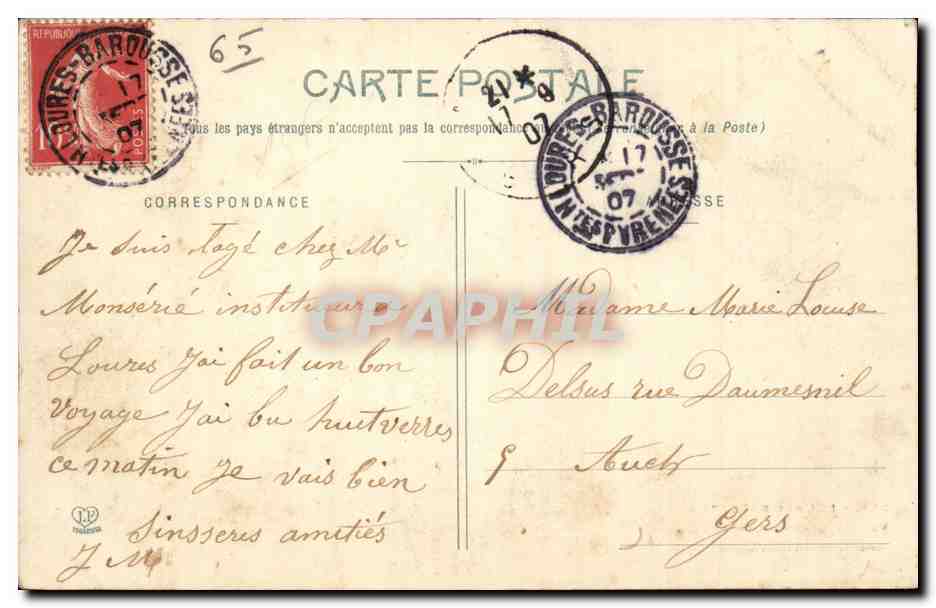 65
RÉPUBLIQUE
POSTES
LOURES-BAROUSSE
17
07
CARTE POSTALE
21 * 9
17
07
LOURES-BAROUSSE
17
SEPT
07
Htes PYRENEES
Tous les pays étrangers n'acceptent pas la correspondance au à la Poste)
CORRESPONDANCE
Je suis logé chez Mr
Monsérié instituteur
Loures J'ai fait un bon
voyage J'ai bu huit verres
ce matin Je vais bien
Sinsseres amitiés
J M
Madame Marie Louise
Delsus rue Daumesnil
9 Auch
Gers
CPAPHIL